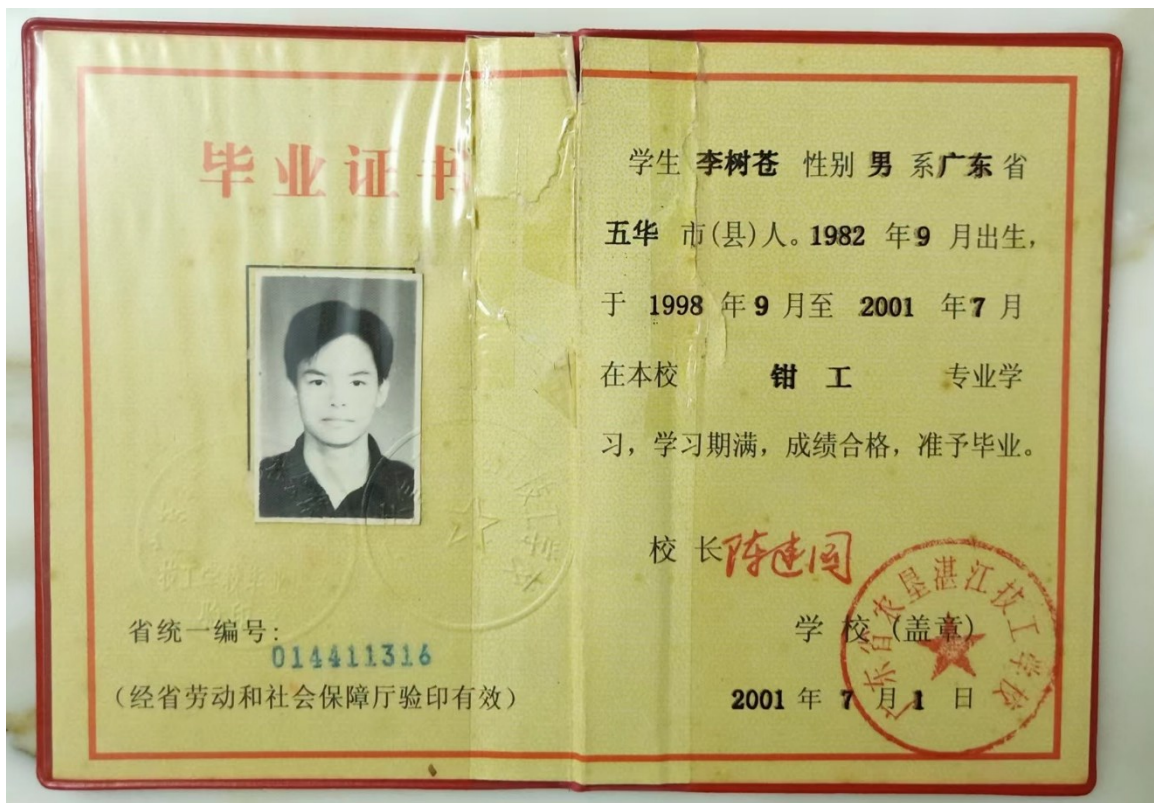 毕业证书
省统一编号:
014411316
(经省劳动和社会保障厅验印有效)
学生 李树苍 性别 男 系广东省
五华 市(县)人。1982 年9 月出生,
于 1998 年 9 月至 2001 年7 月
在本校 钳 工 专业学
习, 学习期满, 成绩合格, 准予毕业。
校 长 陈建国
学 校 (盖章)
广东省农垦湛江技工学校
2001 年 7 月 1 日